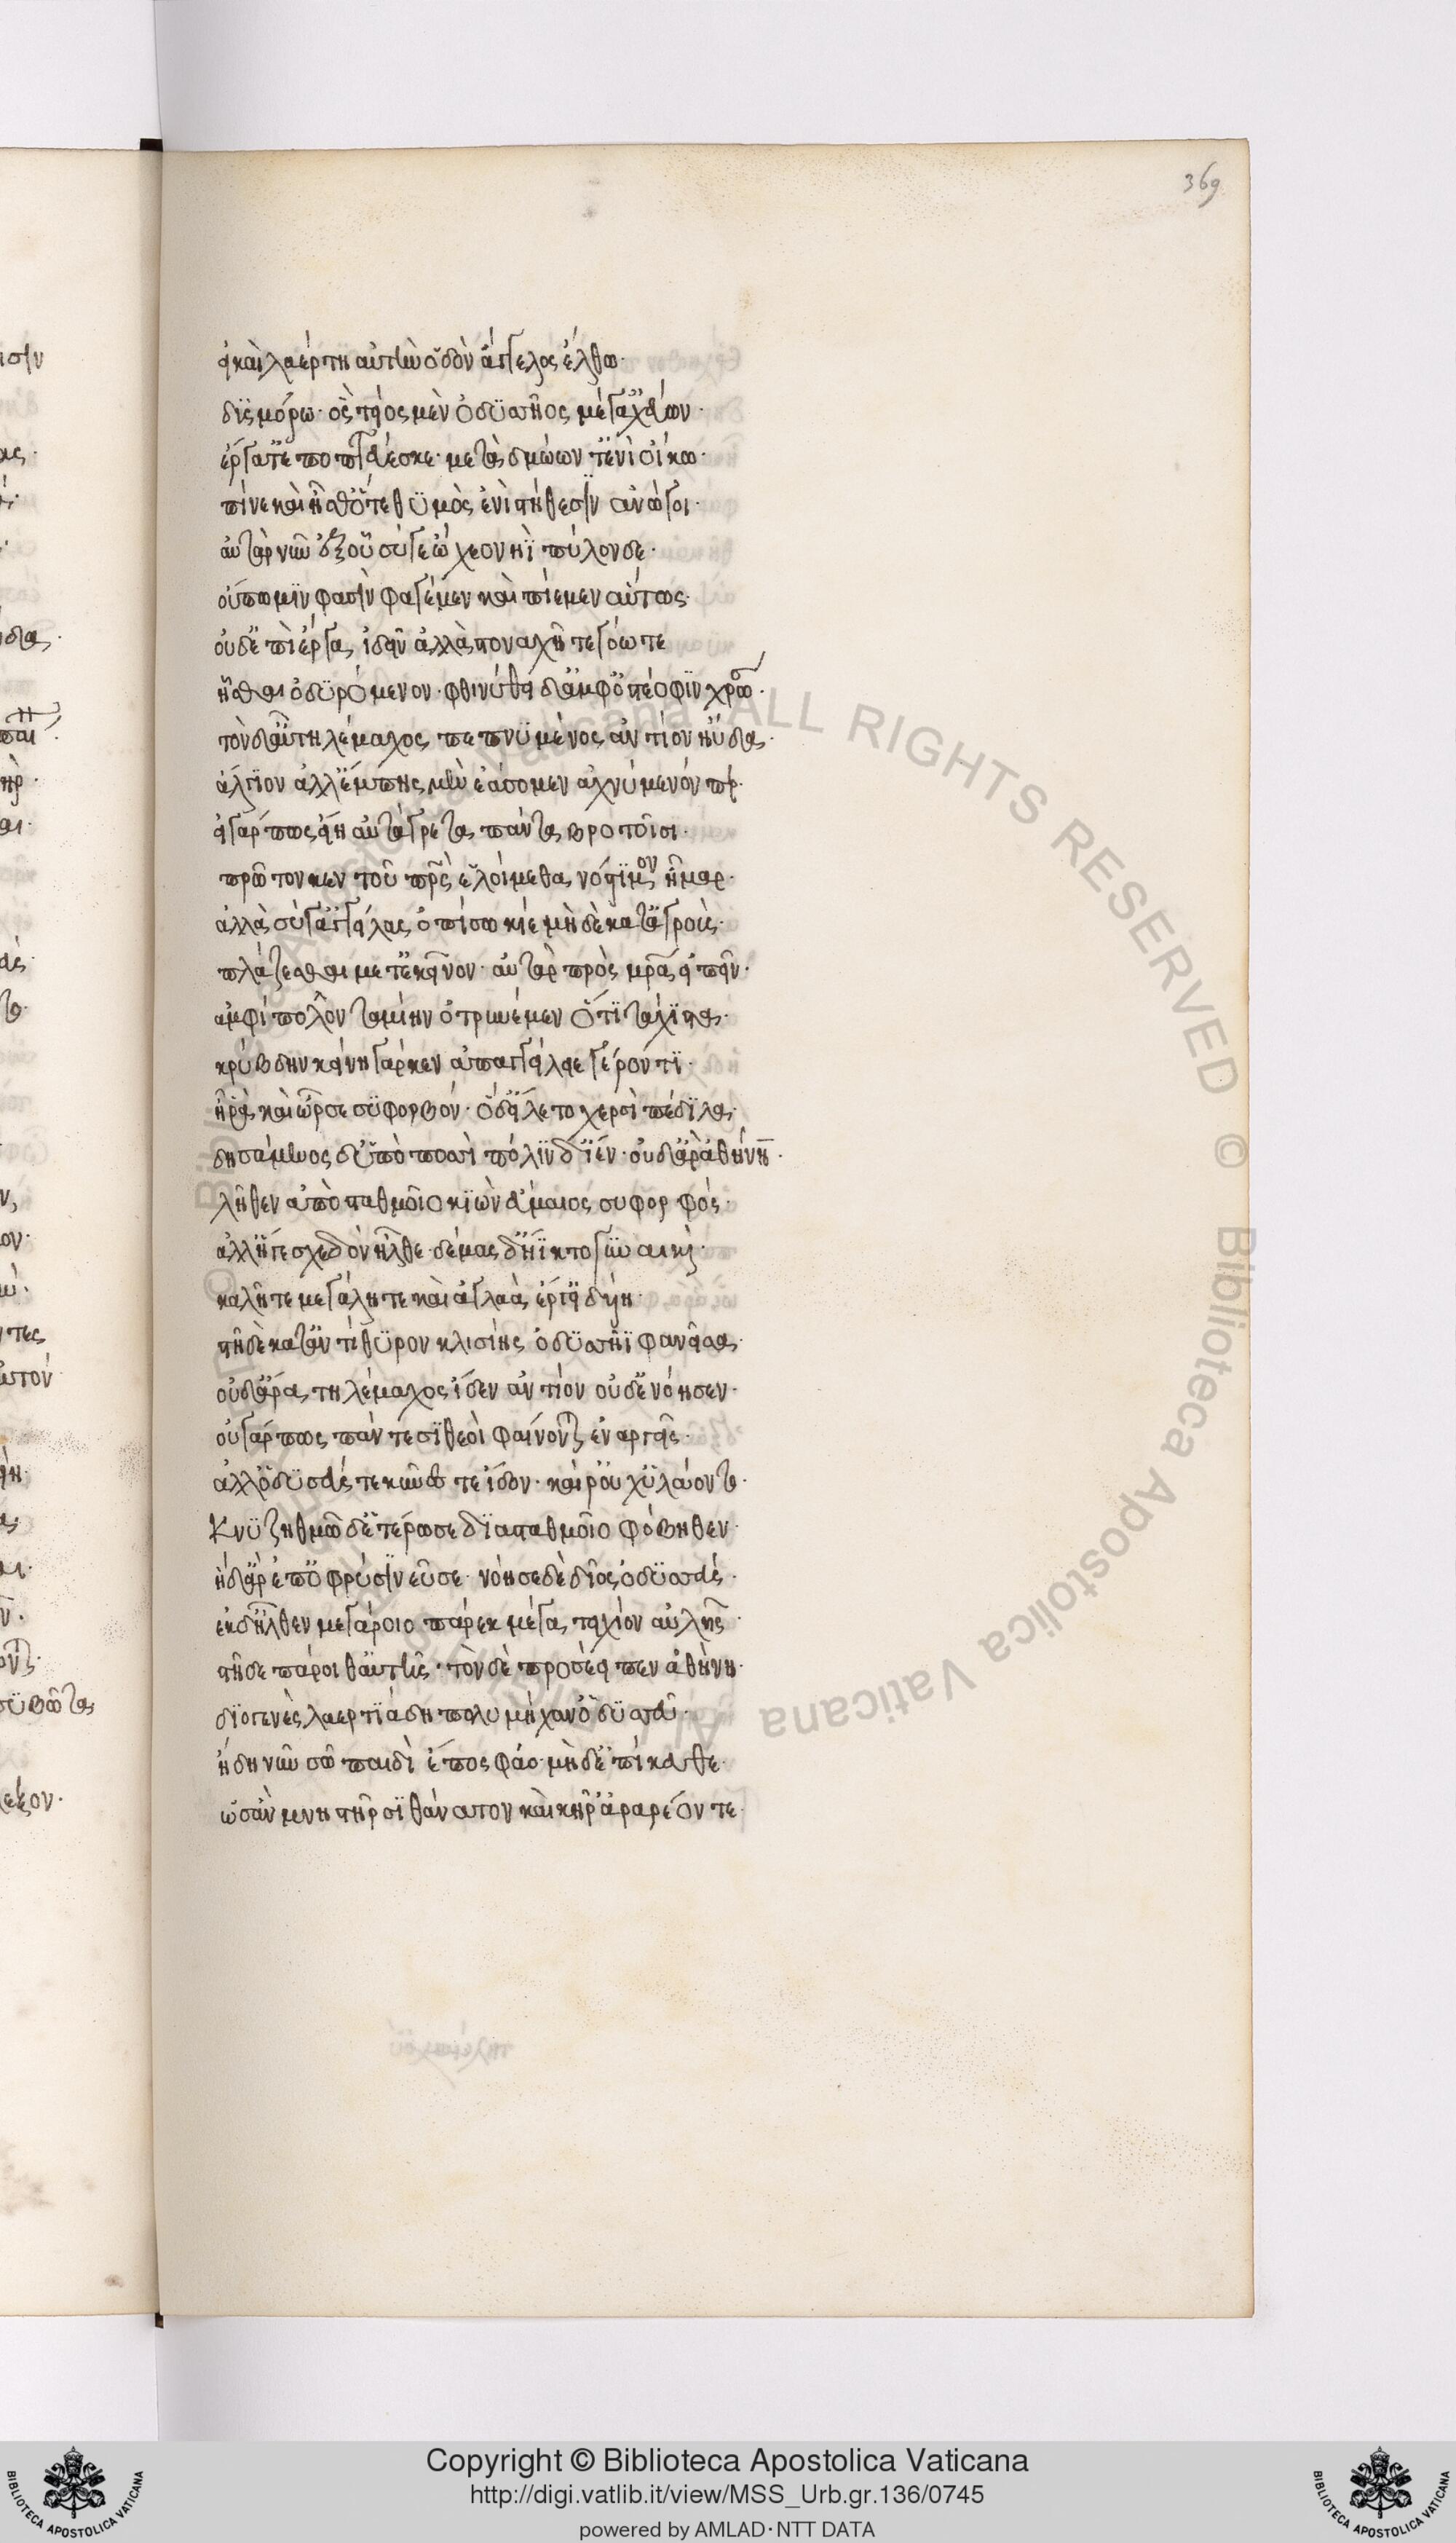 369
εἰ καὶ λαέρτη αὐτὴν ὁδὸν ἄγγελος ἔλθω·
δϊσμόρω· ὃς τεῖος μὲν ὀδϋσσῆος μέγ' ἀχεύων·
ἔργά τ' ἐποπτεύεσκε· μετὰ δμώων τ' ἐνὶ οἴκω·
πίνε καὶ ἦσθ' ὅτε θϋμὸς ἐνὶ στήθεσϊν ἀνώγοι·
αὐτὰρ νῦν ἐξ οὗ σύ γε ὤχεο νηῒ πύλονδε·
οὔπω μϊν φασὶν φαγέμεν καὶ πιέμεν αὔτως·
οὐδ' ἐπὶ ἔργα ἰδεῖν ἀλλὰ στοναχῆ τε γόω τε
ἧσθαι ὀδϋρόμενον· φθινύθει δ' ἀμφ' ὀστεόφϊν χρώς·
τὸν δ' αὖ τηλέμαχος πεπνϋμένος ἀντίον ηὔδα·
ἄλγϊον ἀλλ' ἔμπης μὲν ἐάσομεν ἀχνύμενόν περ·
εἰ γάρ πως εἴη αὐτάγρετα πάντα βροτοῖσι·
πρῶτον κεν τοῦ πρς ἑλοίμεθα νόστϊμον ἦμαρ·
ἀλλὰ σύ γ' ἀγγείλας ὀπίσω κίε μὴ δὲ κατ' ἀγροὺς·
πλάζεσθαι μετ' ἐκεῖνον· αὐτὰρ πρὸς μρα εἰπεῖν·
ἀμφίπολον ταμίην ὀτρυνέμεν ὅττϊ τάχϊστα·
κρύβδην κείνη γάρ κεν ἀπαγγείλειε γέροντϊ·
ἦ ῥα καὶ ὦρσε σϋφορβόν· ὁ δ' εἵλετο χερσὶ πέδϊλα·
δησάμενος δ' ὑπὸ ποσσὶ πόλϊν δ' ἴεν· οὐδ' ἄρ' ἀθήνη·
λῆθεν ἀπὸ σταθμοῖο κϊὼν εὔμαιος συφορφός·
ἀλλ' ἥ γε σχεδὸν ἦλθε· δέμας δ' ἤϊκτο γϋναικὶ·
καλῆ τε μεγάλη τε καὶ ἀγλαὰ ἔργ' εἰδυίη·
στῆ δὲ κατ' ἀντίθϋρον κλισίης ὀδϋσσῆϊ φανεῖσα·
οὐδ' ἄρα τηλέμαχος ἴδεν ἀντίον οὐδ' ἐνόησεν·
οὐ γάρ πως πάντεσϊ θεοὶ φαίνονται ἐναργεῖς·
ἀλλ' ὀδϋσεύς τε κύνες τε ἴδον· καί ῥ' οὐχ ϋλάοντο·
Κνϋζηθμῶ δ' ἑτέρωσε δϊα σταθμοῖο φόβηθεν·
ἡ δ' ἄρ' ἐπ' ὀφρύσϊν εῦσε· νόησε δὲ δῖος ὀδϋσσεύς·
ἐκ δ' ἦλθεν μεγάροιο πάρεκ μέγα τειχίον αὐλῆς·
στῆ δε πάροιθ' αὐτῆς· τὸν δὲ προσέειπεν ἀθήνη·
δϊογενὲς λαερτϊάδη πολυμήχαν' ὀδϋσσεῦ·
ἤδη νῦν σῶ παιδὶ ἔπος φάο· μὴ δ' ἐπίκευθε·
ὡς ἂν μνηστῆρσϊ θάνατον καὶ κῆρ' ἀραρέοντε·
Copyright © Biblioteca Apostolica Vaticana
http://digi.vatlib.it/view/MSS_Urb.gr.136/0745
powered by AMLAD·NTT DATA